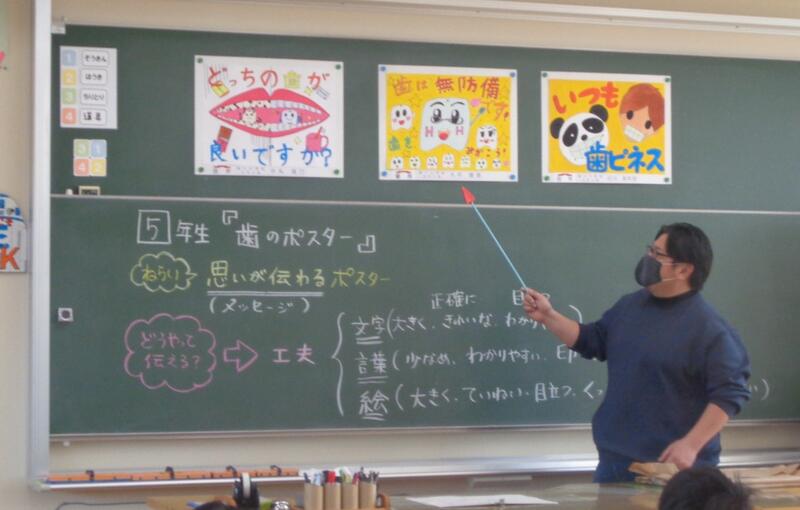 ぞうきん
ほうき
ちりとり
道具
1
2
3
4
3 1
4 2
どっちの歯が
良いですか?
歯は無防備
です!
歯を
みがこう!
いつも
歯ピネス
K
5年生『歯のポスター』
ねらい 思いが伝わるポスター
(メッセージ)
どうやって
伝える?
⇨ 工夫
正確に 目
文字(大きく、きれいな、わかり
言葉(少なめ、わかりやすい、
絵(大きく、ていねい、目立つ、く
い)